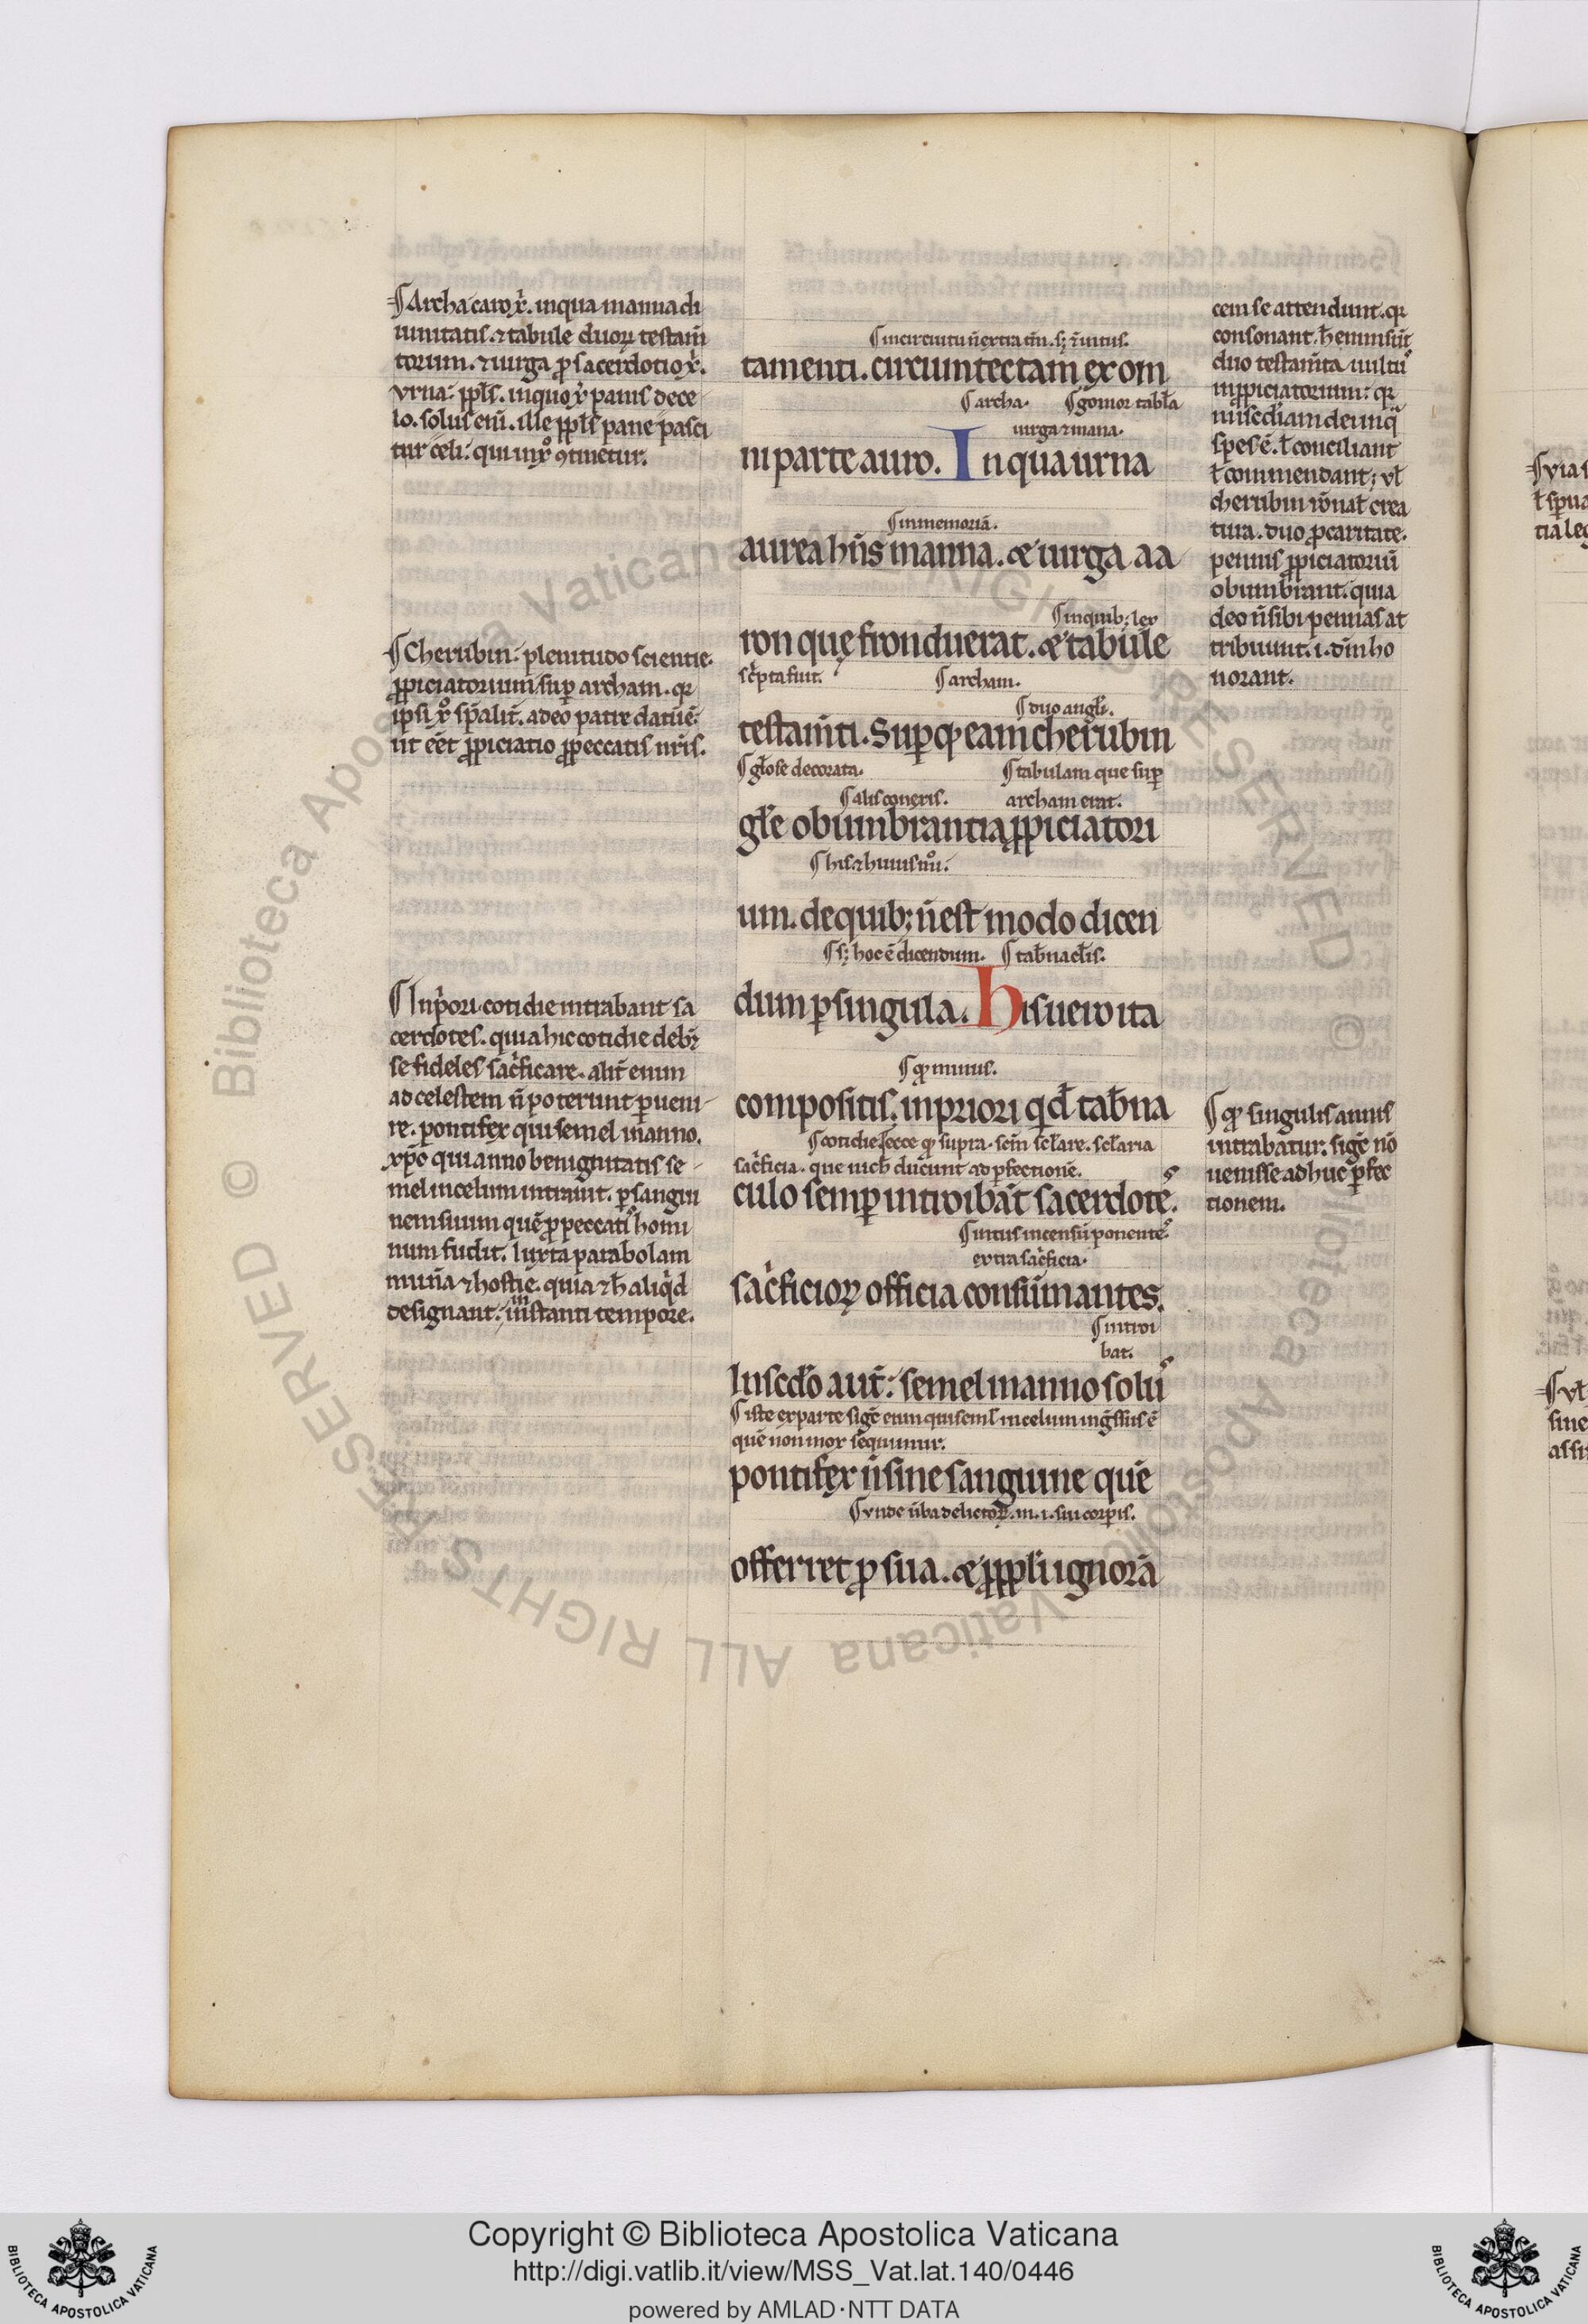 ¶Archa caro xp̄i. in qua manna di
uinitatis. ⁊ tabule duoꝝ testam̄
torum. ⁊ uirga ꝓ sacerdotio xp̄i.
vrna: ppl̄s. in quo xp̄i panis de ce
lo. solus eni. ille ppl̄s pane pasci
tur celi: qui in xp̄o ꝯtinetur.
¶Cherubin: plenitudo scientie.
ꝓpiciatorium sup̄ archam. qꝛ
ipsi xp̄o sp̄alit̄. a deo patre datū ē:
ut eēt ꝓpiciatio ꝓ peccatis nr̄is.
¶In p̄ori cotidie intrabant sa
cerdotes. quia hic cotidie deb̄t
se fideles sac̄ficare. alit̄ enim
ad celestem n̄ poterunt ꝑueni
re. pontifex qui semel in anno.
xp̄c qui anno benignitatis se
mel in celum intrauit. ꝑ sangui
nem suum quē ꝓ peccatis homi
num fudit. Iuxta parabolam
mun̄a ⁊ hostie. quia ⁊ h̄ aliq̄d
designant. in instanti tempore.
¶in circuitu n̄ extra tm̄. sꝫ ⁊ intus.
tamenti. circumtectam ex om
¶archa. ¶gomor tabl̄a
uirga ⁊ mana.
ni parte auro. In qua urna
¶in memoriā.
aurea hn̄s manna. ⁊ uirga aa
¶in quibꝫ lex
ron que fronduerat. ⁊ tabule
sc̄pta fuit. ¶archam.
¶duo angl̄i.
testam̄ti. Supqꝫ eam cherubin
¶gl̄ose decorata. ¶tabulam que sup̄
¶alis con̄eris. archam erat.
gl̄e obumbrantia ꝓpiciatori
¶his ⁊ huiusm̄oi.
um. de quibꝫ n̄ est modo dicen
¶sꝫ hoc ē dicendum. ¶tab̄nacl̄is.
dum ꝑ singula. His uero ita
¶qꝫ minus.
compositis. in priori qd̄ tab̄na
¶cotidie ¶ecce qꝫ supra. sem̄ scl̄are. scl̄aria
sac̄ficia. que nich̄ ducunt ad ꝑfectionē.
culo semꝑ introibāt sacerdotes.
¶intus incensū ponentes
extra sac̄ficia.
sac̄ficioꝝ officia consūmantes.
¶introi
bat.
In scd̄o aut̄: semel in anno solus
¶iste ex parte sig̅t eum qui semel in celum ingr̄ssus ē
quē non mox sequimur.
pontifex n̄ sine sanguine quē
¶vnde
offerret ꝓ sua. ⁊ ꝓ ppl̄i ignorā
cem se attendunt. qꝛ
consonant. h̄ enim sūt
duo testam̄ta uultus
in ꝓpiciatorium: qꝛ
mis̄cdiam dei in q̄
spes ē. l̄ conciliant
l̄ commendant; vl̄
cherubin rōnal̄ crea
tura. duo ꝓ caritate.
pennis ꝓpiciatoriū
obumbrant. quia
deo n̄ sibi pennas at
tribuunt. i. dm̄ ho
norant.
¶qꝫ singulis annis
intrabatur. sig̅t nō
uenisse adhuc ꝑfec
tionem.
Copyright © Biblioteca Apostolica Vaticana
http://digi.vatlib.it/view/MSS_Vat.lat.140/0446
powered by AMLAD·NTT DATA
BIBLIOTECA APOSTOLICA VATICANA
BIBLIOTECA APOSTOLICA VATICANA